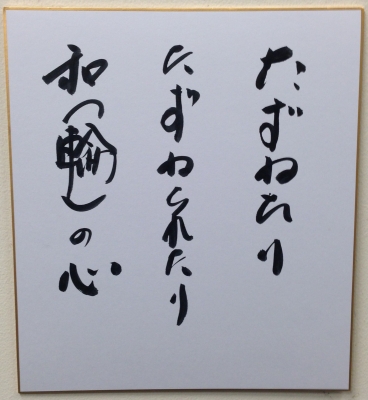 たずねたり
たずねられたり
和（輪）の心